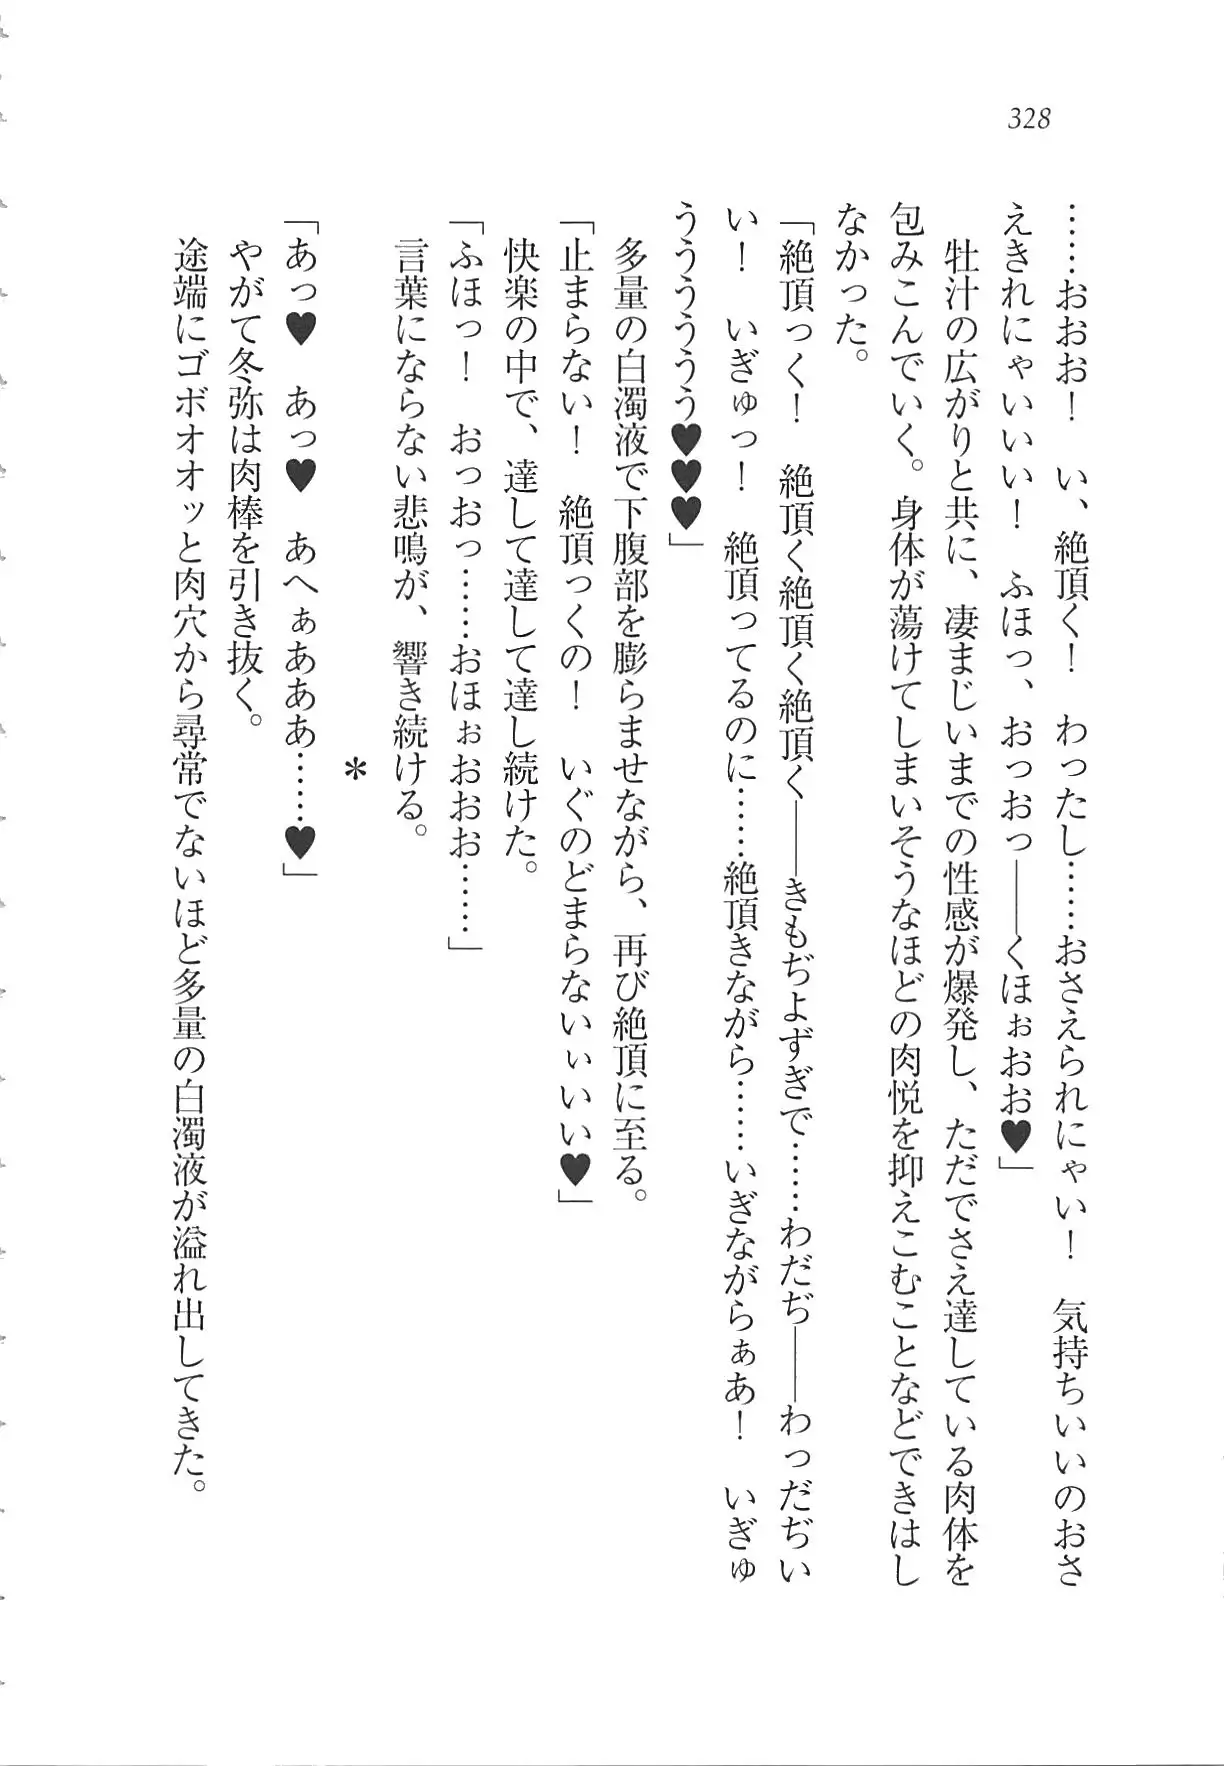 328
……おおお！　い、絶頂く！　わったし……おさえられにゃい！　気持ちいいのおさ
えきれにゃいいい！　ふほっ、おっおっ――くほぉおお♥」
　牡汁の広がりと共に、凄まじいまでの性感が爆発し、ただでさえ達している肉体を
包みこんでいく。身体が蕩けてしまいそうなほどの肉悦を抑えこむことなどできはし
なかった。
「絶頂っく！　絶頂く絶頂く絶頂く――きもぢよずぎで……わだぢ――わっだぢい
い！　いぎゅっ！　絶頂ってるのに……絶頂きながら……いぎながらぁあ！　いぎゅ
うううううう♥♥♥」
　多量の白濁液で下腹部を膨らませながら、再び絶頂に至る。
「止まらない！　絶頂っくの！　いぐのどまらないぃいい♥」
　快楽の中で、達して達して達し続けた。
「ふほっ！　おっおっ……おほぉおおお……」
　言葉にならない悲鳴が、響き続ける。
＊
「あっ♥　あっ♥　あへぁあああ……♥」
　やがて冬弥は肉棒を引き抜く。
　途端にゴボオオッと肉穴から尋常でないほど多量の白濁液が溢れ出してきた。